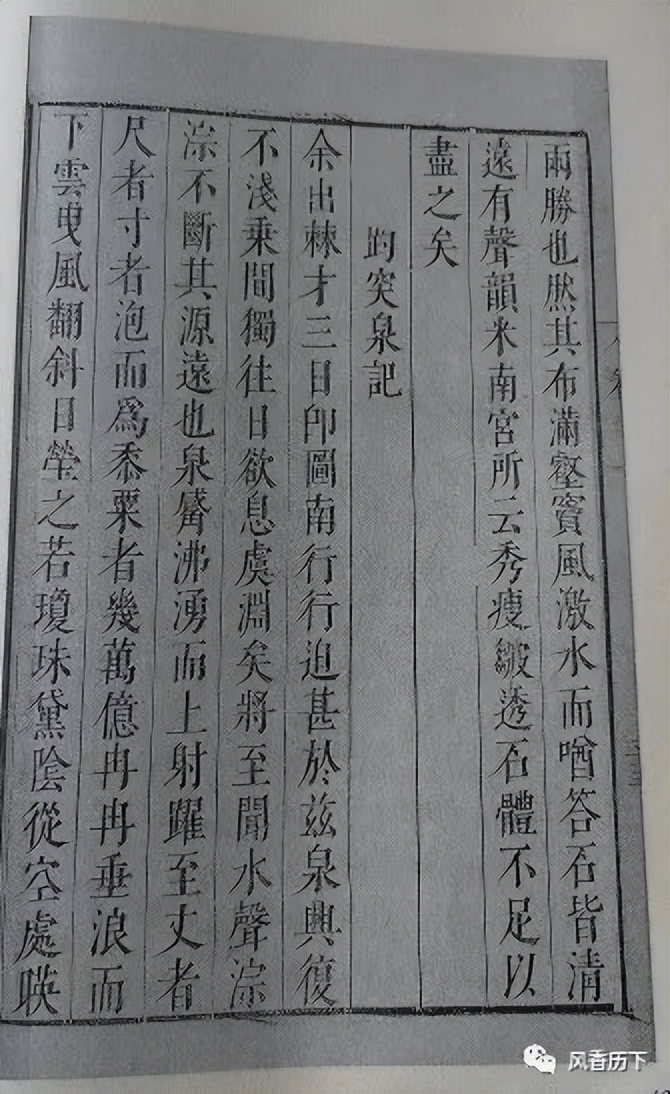 兩勝也然其布滿壑竇風激水而噌答石皆清
遠有聲韻米南宮所云秀瘦皺透石體不足以
盡之矣
趵突泉記
余出棘才三日卽圖南行行迫甚於兹泉興復
不淺乗間獨往日欲息虞淵矣將至聞水聲淙
淙不斷其源遠也泉觱沸湧而上射躍至丈者
尺者寸者泡而爲黍粟者幾萬億冉冉垂浪而
下雲曳風翻斜日瑩之若瓊珠黛陰從空處暎
风香历下